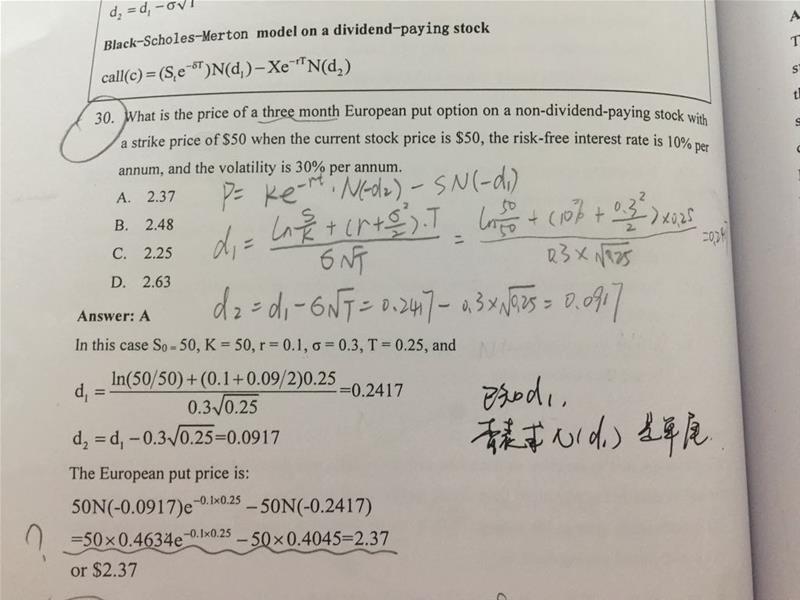 d₂ = d₁ − σ√T
Black-Scholes-Merton model on a dividend-paying stock
call(c) = (Sₜe^−δT)N(d₁) − Xe^−rT N(d₂)
30. What is the price of a three month European put option on a non-dividend-paying stock with
a strike price of $50 when the current stock price is $50, the risk-free interest rate is 10% per
annum, and the volatility is 30% per annum.
A. 2.37
P = Ke^−rt · N(−d₂) − SN(−d₁)
B. 2.48
C. 2.25
d₁ = (ln S/K + (r + σ²/2)·T) / σ√T = (ln 50/50 + (10% + 0.3²/2) × 0.25) / (0.3 × √0.25)
D. 2.63
d₂ = d₁ − σ√T = 0.2417 − 0.3×√0.25 = 0.0917
Answer: A
In this case S₀ = 50, K = 50, r = 0.1, σ = 0.3, T = 0.25, and
d₁ = (ln(50/50) + (0.1 + 0.09/2)0.25) / (0.3√0.25) = 0.2417
d₂ = d₁ − 0.3√0.25 = 0.0917
已知d₁,
查表求 N(d₁) 是单尾.
The European put price is:
50N(-0.0917)e^−0.1×0.25 − 50N(-0.2417)
? =50×0.4634e^−0.1×0.25 − 50×0.4045=2.37
or $2.37